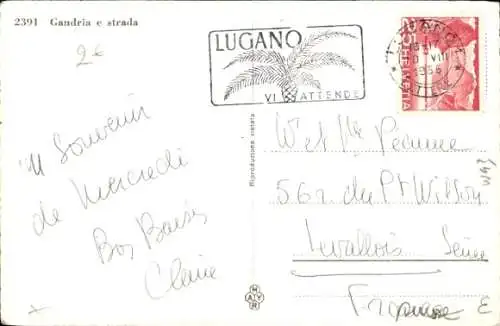 2391 Gandria e strada
2€
LUGANO
VI ATTENDE
LUGANO
1956
HELVETIA
Riproduzione vietata
Souvenir
de Mercredi
Bons Baisers
Claire
56 r. du Pt Wilson
Levallois Seine
France